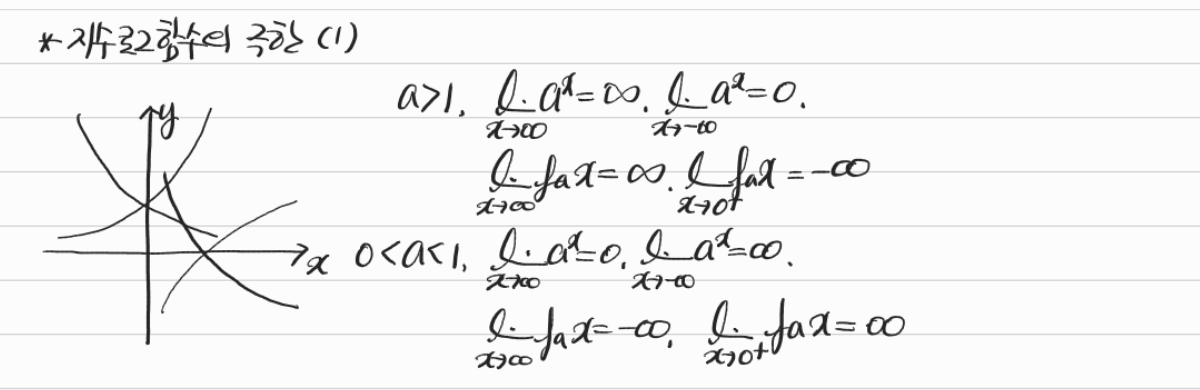 * 지수로그함수의 극한 (1)
y
x
a>1, lim_{x→∞} a^x=∞. lim_{x→-∞} a^x=0.
lim_{x→∞} log_a x=∞. lim_{x→0+} log_a x=-∞
0<a<1, lim_{x→∞} a^x=0. lim_{x→-∞} a^x=∞.
lim_{x→∞} log_a x=-∞, lim_{x→0+} log_a x=∞